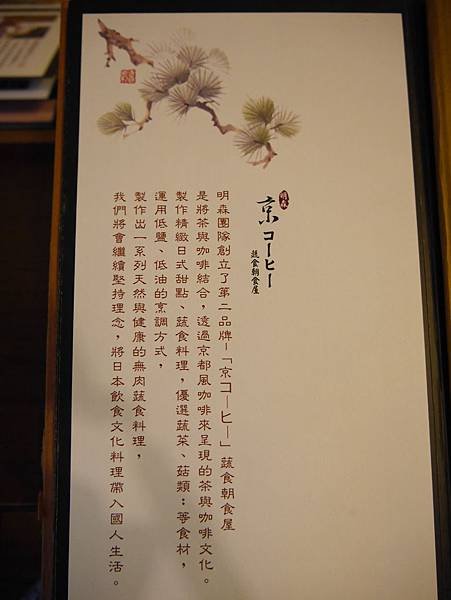 明森
京コーヒー
蔬食朝食屋
明森團隊創立了第二品牌-「京コーヒー」蔬食朝食屋
是將茶與咖啡結合，透過京都風咖啡來呈現的茶與咖啡文化。
製作精緻日式甜點、蔬食料理，優選蔬菜、菇類：等食材，
運用低鹽、低油的烹調方式，
製作出一系列天然與健康的無肉蔬食料理，
我們將會繼續堅持理念，將日本飲食文化料理帶入國人生活。